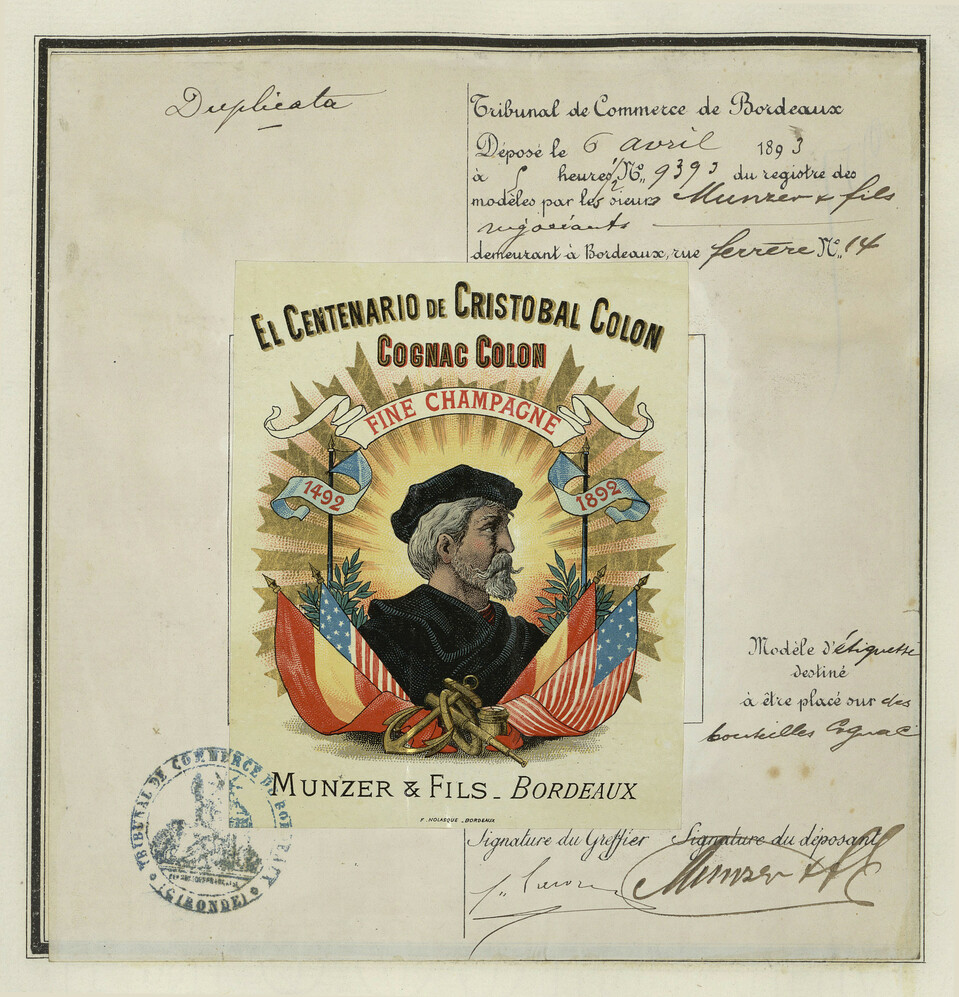 Duplicata
Tribunal de Commerce de Bordeaux
Déposé le 6 avril 1893
à 5 heures 1/2 No. 9393 du registre des
modèles par les sieurs Munzer & fils
négociants
demeurant à Bordeaux, rue ferrère No. 14
EL CENTENARIO DE CRISTOBAL COLON
COGNAC COLON
FINE CHAMPAGNE
1492
1892
MUNZER & FILS_ BORDEAUX
F. NOLASQUE _ BORDEAUX
Modèle d'étiquette
destiné
à être placé sur des
bouteilles Cognac
TRIBUNAL DE COMMERCE DE BORDEAUX
(GIRONDE)
Signature du Greffier Signature du déposant
Munzer & fils